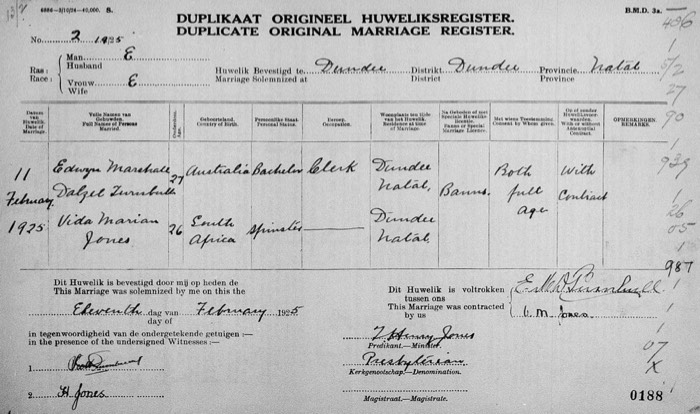 6686—3/10/24—40,000. S.
B.M.D. 3a.
DUPLIKAAT ORIGINEEL HUWELIKSREGISTER.
DUPLICATE ORIGINAL MARRIAGE REGISTER.
No. 2 1925
Ras: Man E
Race: Husband
Vrouw E
Wife
Huwelik Bevestigd te Dundee Distrikt Dundee Provincie Natal
Marriage Solemnized at District Province
Datum van Huwelik. Date of Marriage.
Volle Namen van Gehuwden. Full Names of Persons Married.
Ouderdom. Age.
Geboorteland. Country of Birth.
Persoonlike Staat. Personal Status.
Beroep. Occupation.
Woonplaats ten tijde van het Huwelik. Residence at time of Marriage.
Na Geboden of met Speciale Huwelikslicentie. Banns or Special Marriage Licence.
Met wiens Toestemming. Consent by Whom given.
Op of zonder Huweliksvoorwaarden. With or without Antenuptial Contract.
OPMERKINGEN. REMARKS.
11 Edwyn Marshall 27 Australia Bachelor Clerk Dundee Both With
February Dalzel Turnbull Natal, Banns. full Contract
1925 Vida Marian 26 South Spinster Dundee age
Jones Africa Natal.
486
1
5/2
27
90
1
929
1
26
05
1
987
1
1
1
07
X
Dit Huwelik is bevestigd door mij op heden de
This Marriage was solemnized by me on this the
Eleventh dag van February 1925
day of
in tegenwoordigheid van de ondergetekende getuigen :—
in the presence of the undersigned Witnesses :—
1.
2. H Jones
Dit Huwelik is voltrokken
tussen ons
This Marriage was contracted
by us
E. M. D. Turnbull
V. M. Jones.
J Henry Jones
Predikant.—Minister.
Presbyterian
Kerkgenootschap.—Denomination.
Magistraat.—Magistrate.
0188